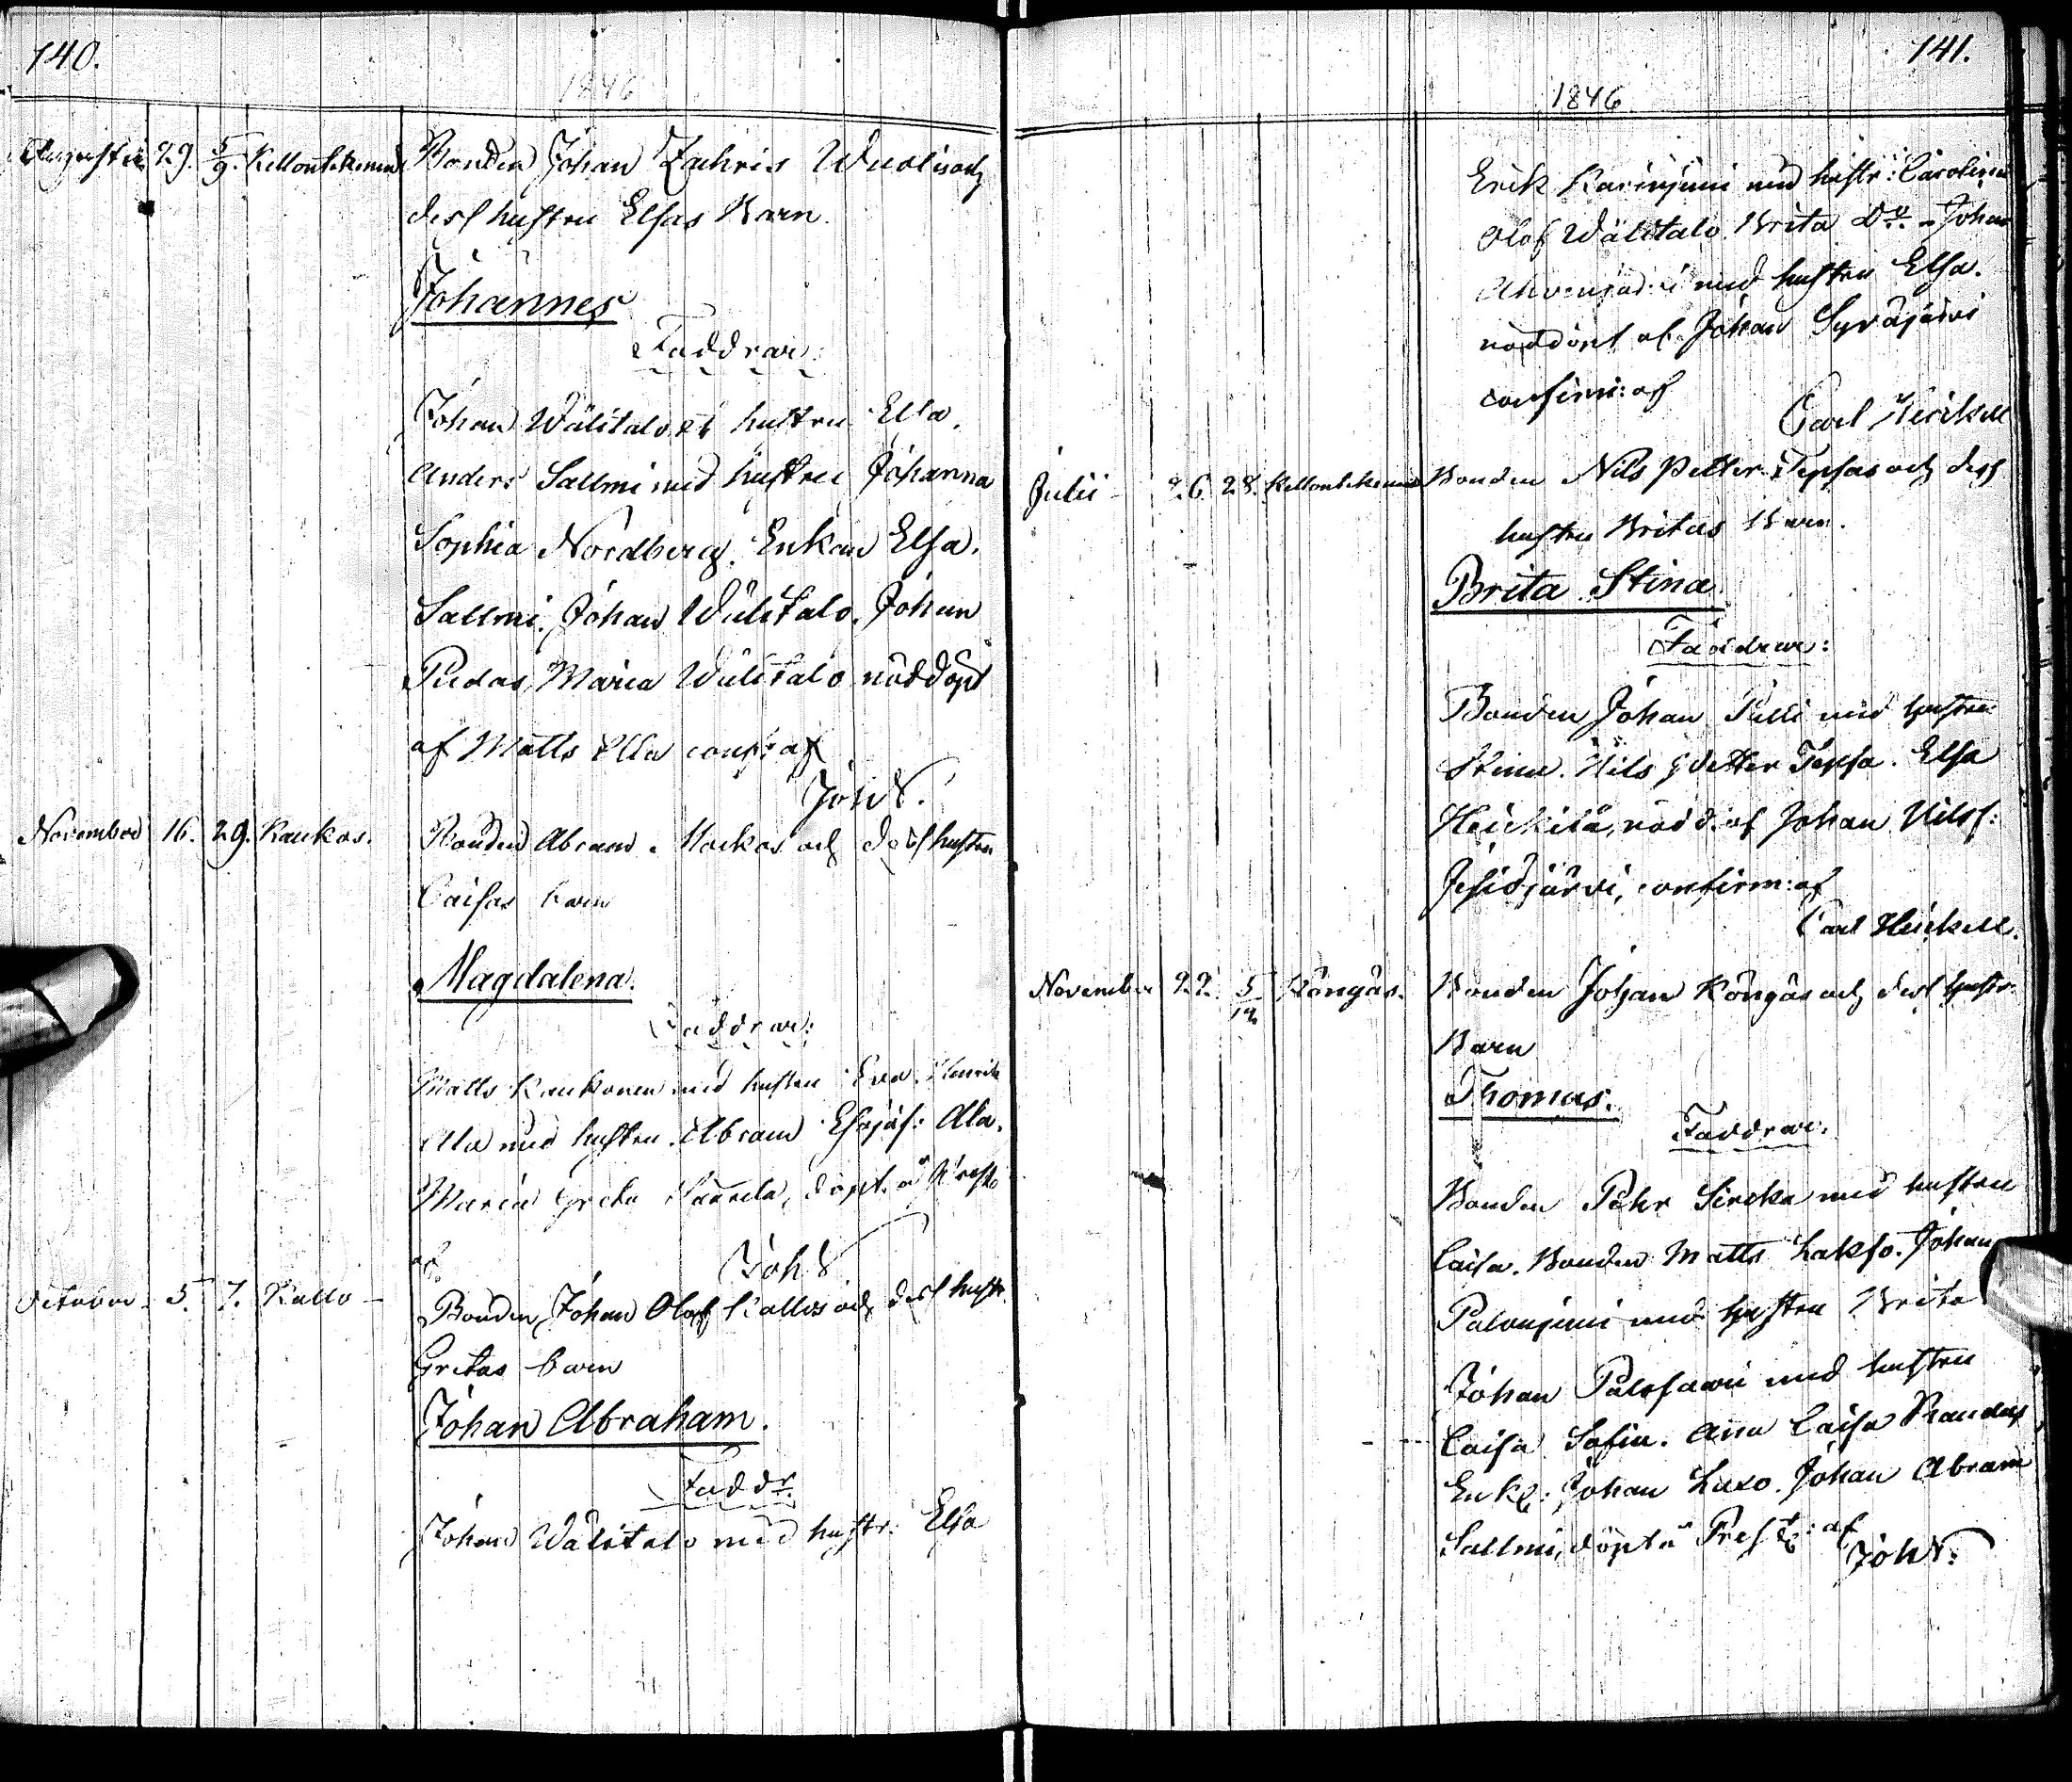 140.
1846
Augusti 29. 5/9. Kellontekemä Bonden Johan Zachris Wuolis och
dess hustru Elsas Barn.
Johannes
Faddrar:
Johan Wälitalo hustru Ella.
Anders Sallmi med hustru Johanna
Sophia Nordberg. Enkan Elsa.
Sallmi. Johan Wälitalo. Johan
Pudas, Maria Wälitalo nöddöpt
af Matts Ella conf: af
Joh V.
November 16. 29. Kaukos. Bonden Abram och dess hustru
Caisas barn
Magdalena.
Faddrar:
Matts Kaukonen med hustru Eva. Henrik
Ala med hustru. Abram Esajæs: Ala.
Maria Greta döpt å Prestg
af Joh V.
October 5. 7. Kallo Bonden Johan Olof Kallos och dess hustr
Gretas barn
Johan Abraham.
Faddr.
Johan Wälitalo med hustr: Elsa
141.
1846
Erick med hustr: Carolina
Olof Wälitalo Brita Do. Johan
med hustru Elsa.
nöddöpt af Johan Syväjärvi
confirm: af
Carl Heickell
Julii 26. 28. Kellontekemä Bonden Nils Petter Tepsas och dess
hustru Britas Barn.
Brita Stina
Faddrar:
Bonden Johan Pulli med hustru
Stina. Nils Petter Tepsa. Elsa
Heickilä, nödd: af Johan Nilss:
Jesiöjärvi, confirm: af
Carl Heickell.
November 22. 5/12 Köngäs. Bonden Johan Köngäs och dess hustr:
Barn
Thomas.
Faddrar.
Bonden Pehr Sircka med hustru
Caisa. Bonden Matts Lakso. Johan
Palonjimi med hustru Brita
Johan Palosaari med hustru
Caisa Sofia. Anna Caisa
Enk: Johan Laxo. Johan Abram
Sallmi, döpt å Prestg: af
Joh V.